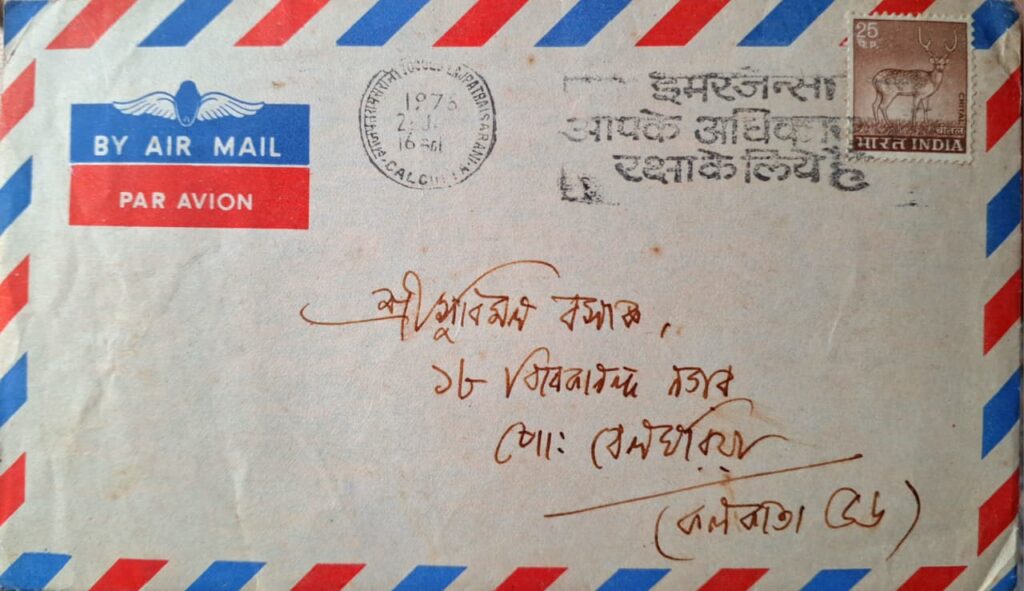 25
P.
CHITAL चीतल
भारत INDIA
LAJPATRAI SARANI
1976
CALCUTTA
इमरजेन्सी
आपके
रक्षा के लिये है
BY AIR MAIL
PAR AVION
শ্রীসুবিমল বসাক,
১৮ বিবেকানন্দ নগর
পোঃ বেলঘরিয়া
(কলকাতা ৫৬)